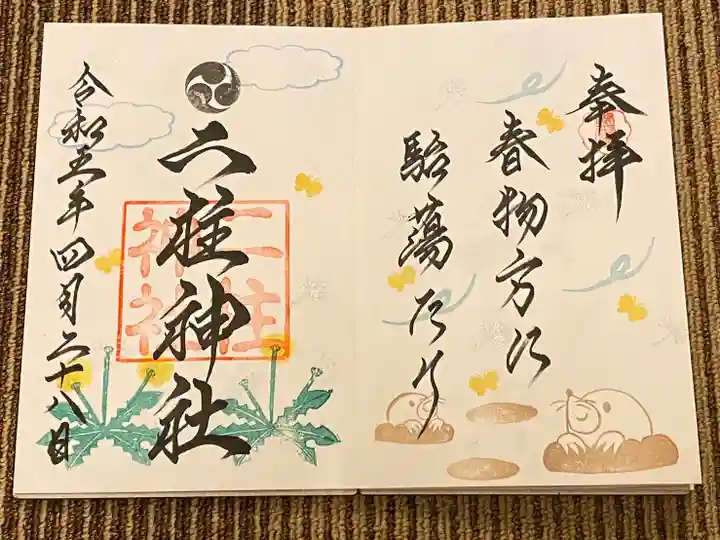 奉拝
春物方に
駘蕩たり
二柱神社
二柱
神社
令和五年四月二十八日